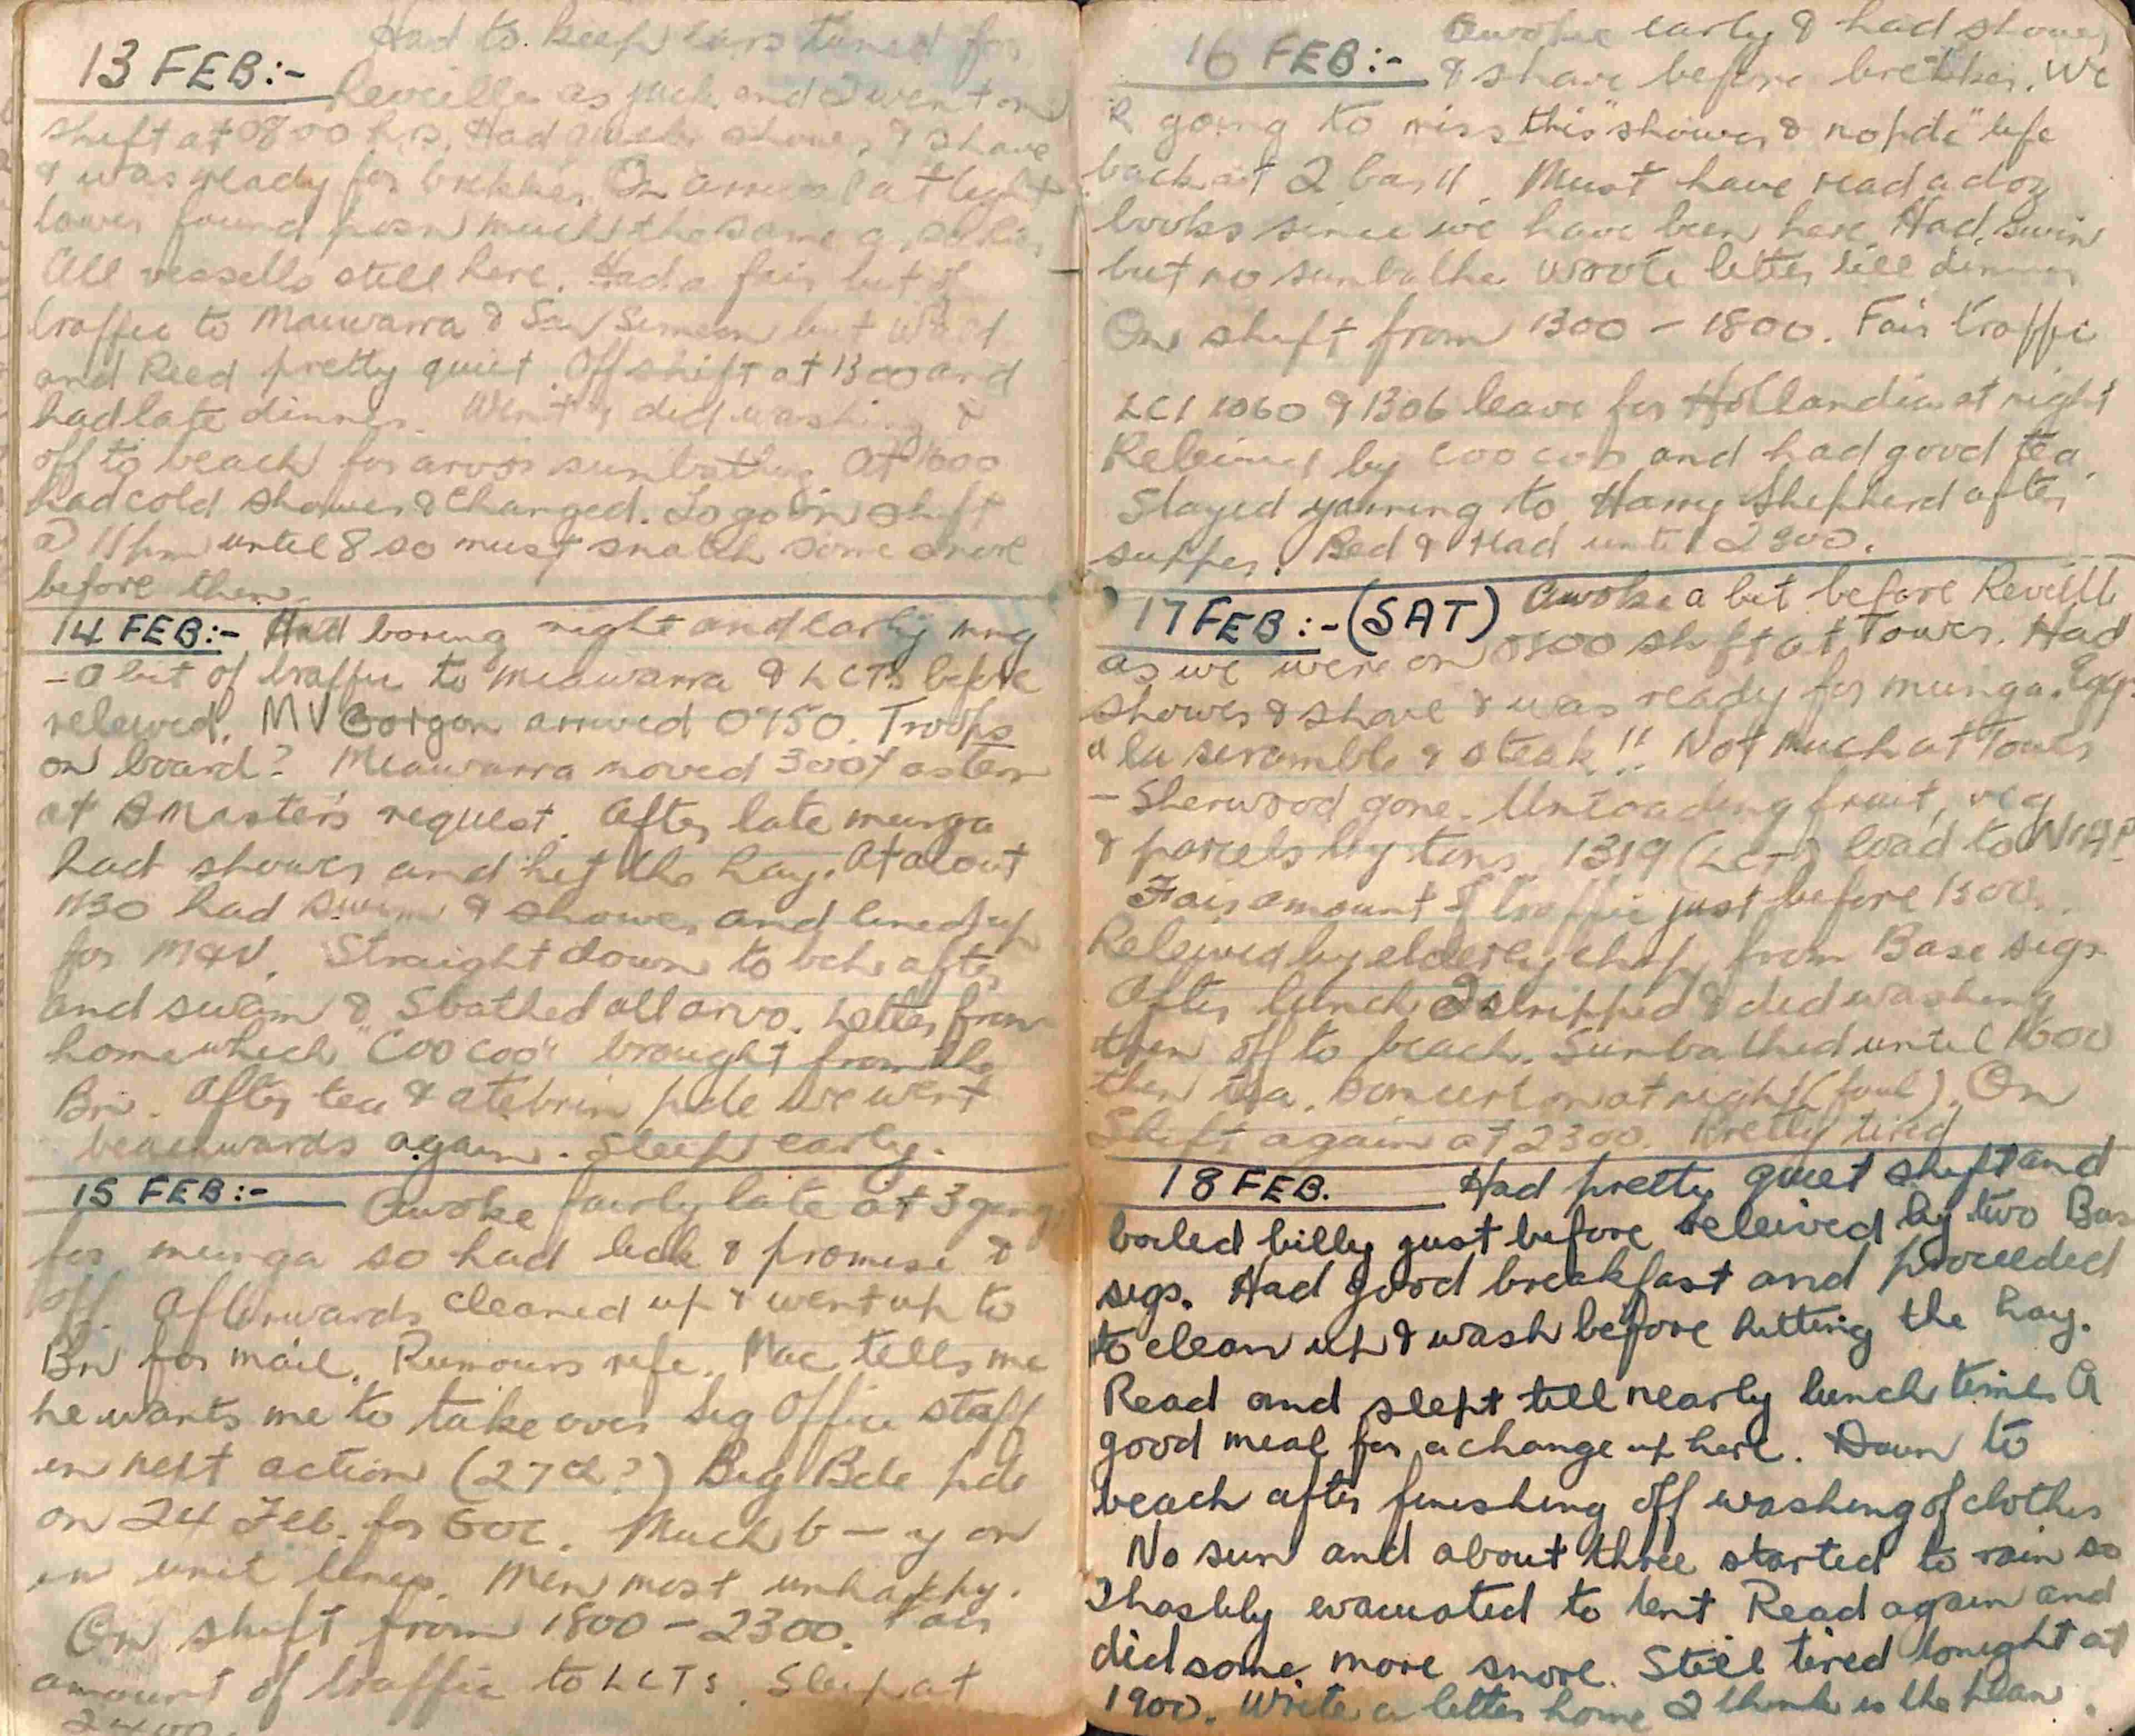 13 FEB:- Had to keep ears tuned for
Reveille as Jack and I went on
shift at 0800 hrs. Had quick shower & shave
& was ready for brekker. On arrival at light
tower found posn much the same as
All vessells still here. Had a fair bit of
traffic to Miawarra & San Simeon but
and Reed pretty quiet. Off shift at 1300 and
had late dinner. Went & did washing &
off to beach for arvos sunbathing. At 1600
had cold shower & changed. To go on shift
@ 11pm until 8 so must snatch some snore
before then.
14 FEB:- Had boring night and early mng
- a bit of traffic to Miawarra & LCTs before
releived. MV Gorgon arrived 0750. Troops
on board? Miawarra moved 300x astern
at Master's request. After late munga
had shower and hit the hay. At about
1130 had swim & shower and lined up
for M&V. Straight down to bch after
and swam & Sbathed all arvo. Letter from
home which "Coo coo" brought from the
Bn. After tea & atebrin pde we went
beachwards again. Sleep early.
15 FEB:- Awoke fairly late at 3 gong
for munga so had lick & promise &
off. Afterwards cleaned up & went up to
Bn for mail. Rumours rife. Mac tells me
he wants me to take over Sig Office staff
in next action (27th?) Big Bde pde
on 24 Feb. for GOC. Much b—y on
in unit lines. Men most unhappy.
On shift from 1800 - 2300. Fair
amount of traffic to LCTs. Sleep at
2400.
16 FEB:- Awoke early & had shower
& shave before brekker. We
R going to miss this "shower & no pde" life
back at 2 Bn!! Must have read a doz
books since we have been here. Had swim
but no sunbathe. Wrote letter till dinner
On shift from 1300 - 1800. Fair traffic
LCI 1060 & 1306 leave for Hollandia at night
Releived by Coo coo and had good tea.
Stayed yarning to Harry Shepherd after
supper. Bed & Had until 2300.
17 FEB:- (SAT) Awoke a bit before Reveille
as we were on 0800 shift at Tower. Had
shower & shave & was ready for munga. Eggs
a la scramble & steak!! Not much at Tower
- Sherwood gone. Unloading fruit, veg
& parcels by tons. 1319 (LCT) load to
Fair amount of traffic just before 1300..
Releived by elderly chap from Base sigs.
After lunch I stripped & did washing
then off to beach. Sunbathed until 1600
then tea. Concert on at night (foul). On
Shift again at 2300. Pretty tired
18 FEB. Had pretty quiet shift and
boiled billy just before releived by two Base
sigs. Had good breakfast and proceeded
to clean up & wash before hitting the hay.
Read and slept till nearly lunch time. A
good meal for a change up here. Down to
beach after finishing off washing of clothes
No sun and about three started to rain so
I hastily evacuated to tent Read again and
did some more snore. Still tired tonight at
1900. Write a letter home I think is the plan.